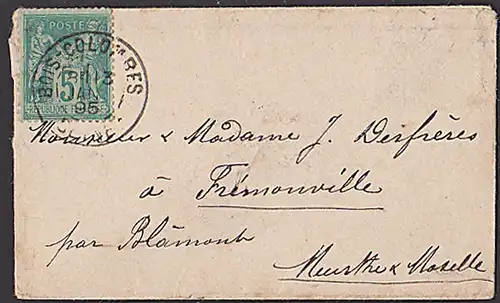 POSTE
5
BOIS-COLOMBES
13
JANV
95
Monsieur & Madame J. Desfrères
à Frémonville
par Blâmont
Meurthe & Moselle